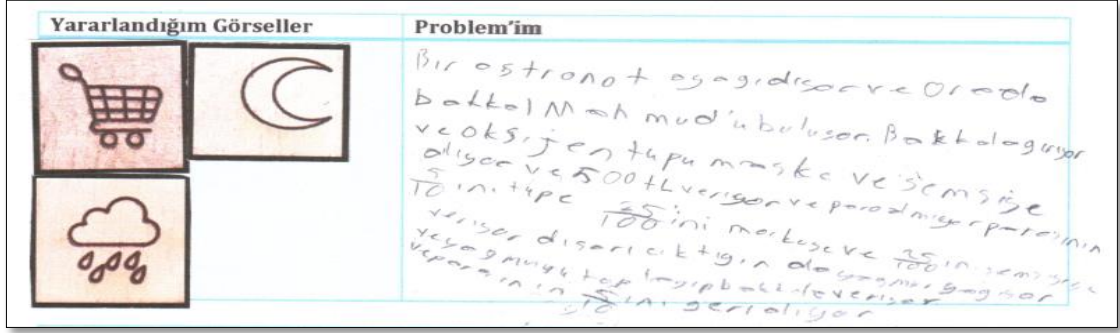 Yararlandığım Görseller
Problem'im
Bir astronot aya gidiyor ve Orada
bakkal Mahmud'u buluyor. Bakkala giriyor
ve oksijen tüpü maske ve şemsiye
alıyor ve 500 tl veriyor ve para almıyor parasının
5/10 ini tüpe 25/100 ini maskeye ve 25/100 in şemsiyeye
veriyor dışarı çıktığın da yağmur yağıyor
ve yağmuru toplayıp bakkala veriyor
ve parasının 5/10 ini geri alıyor